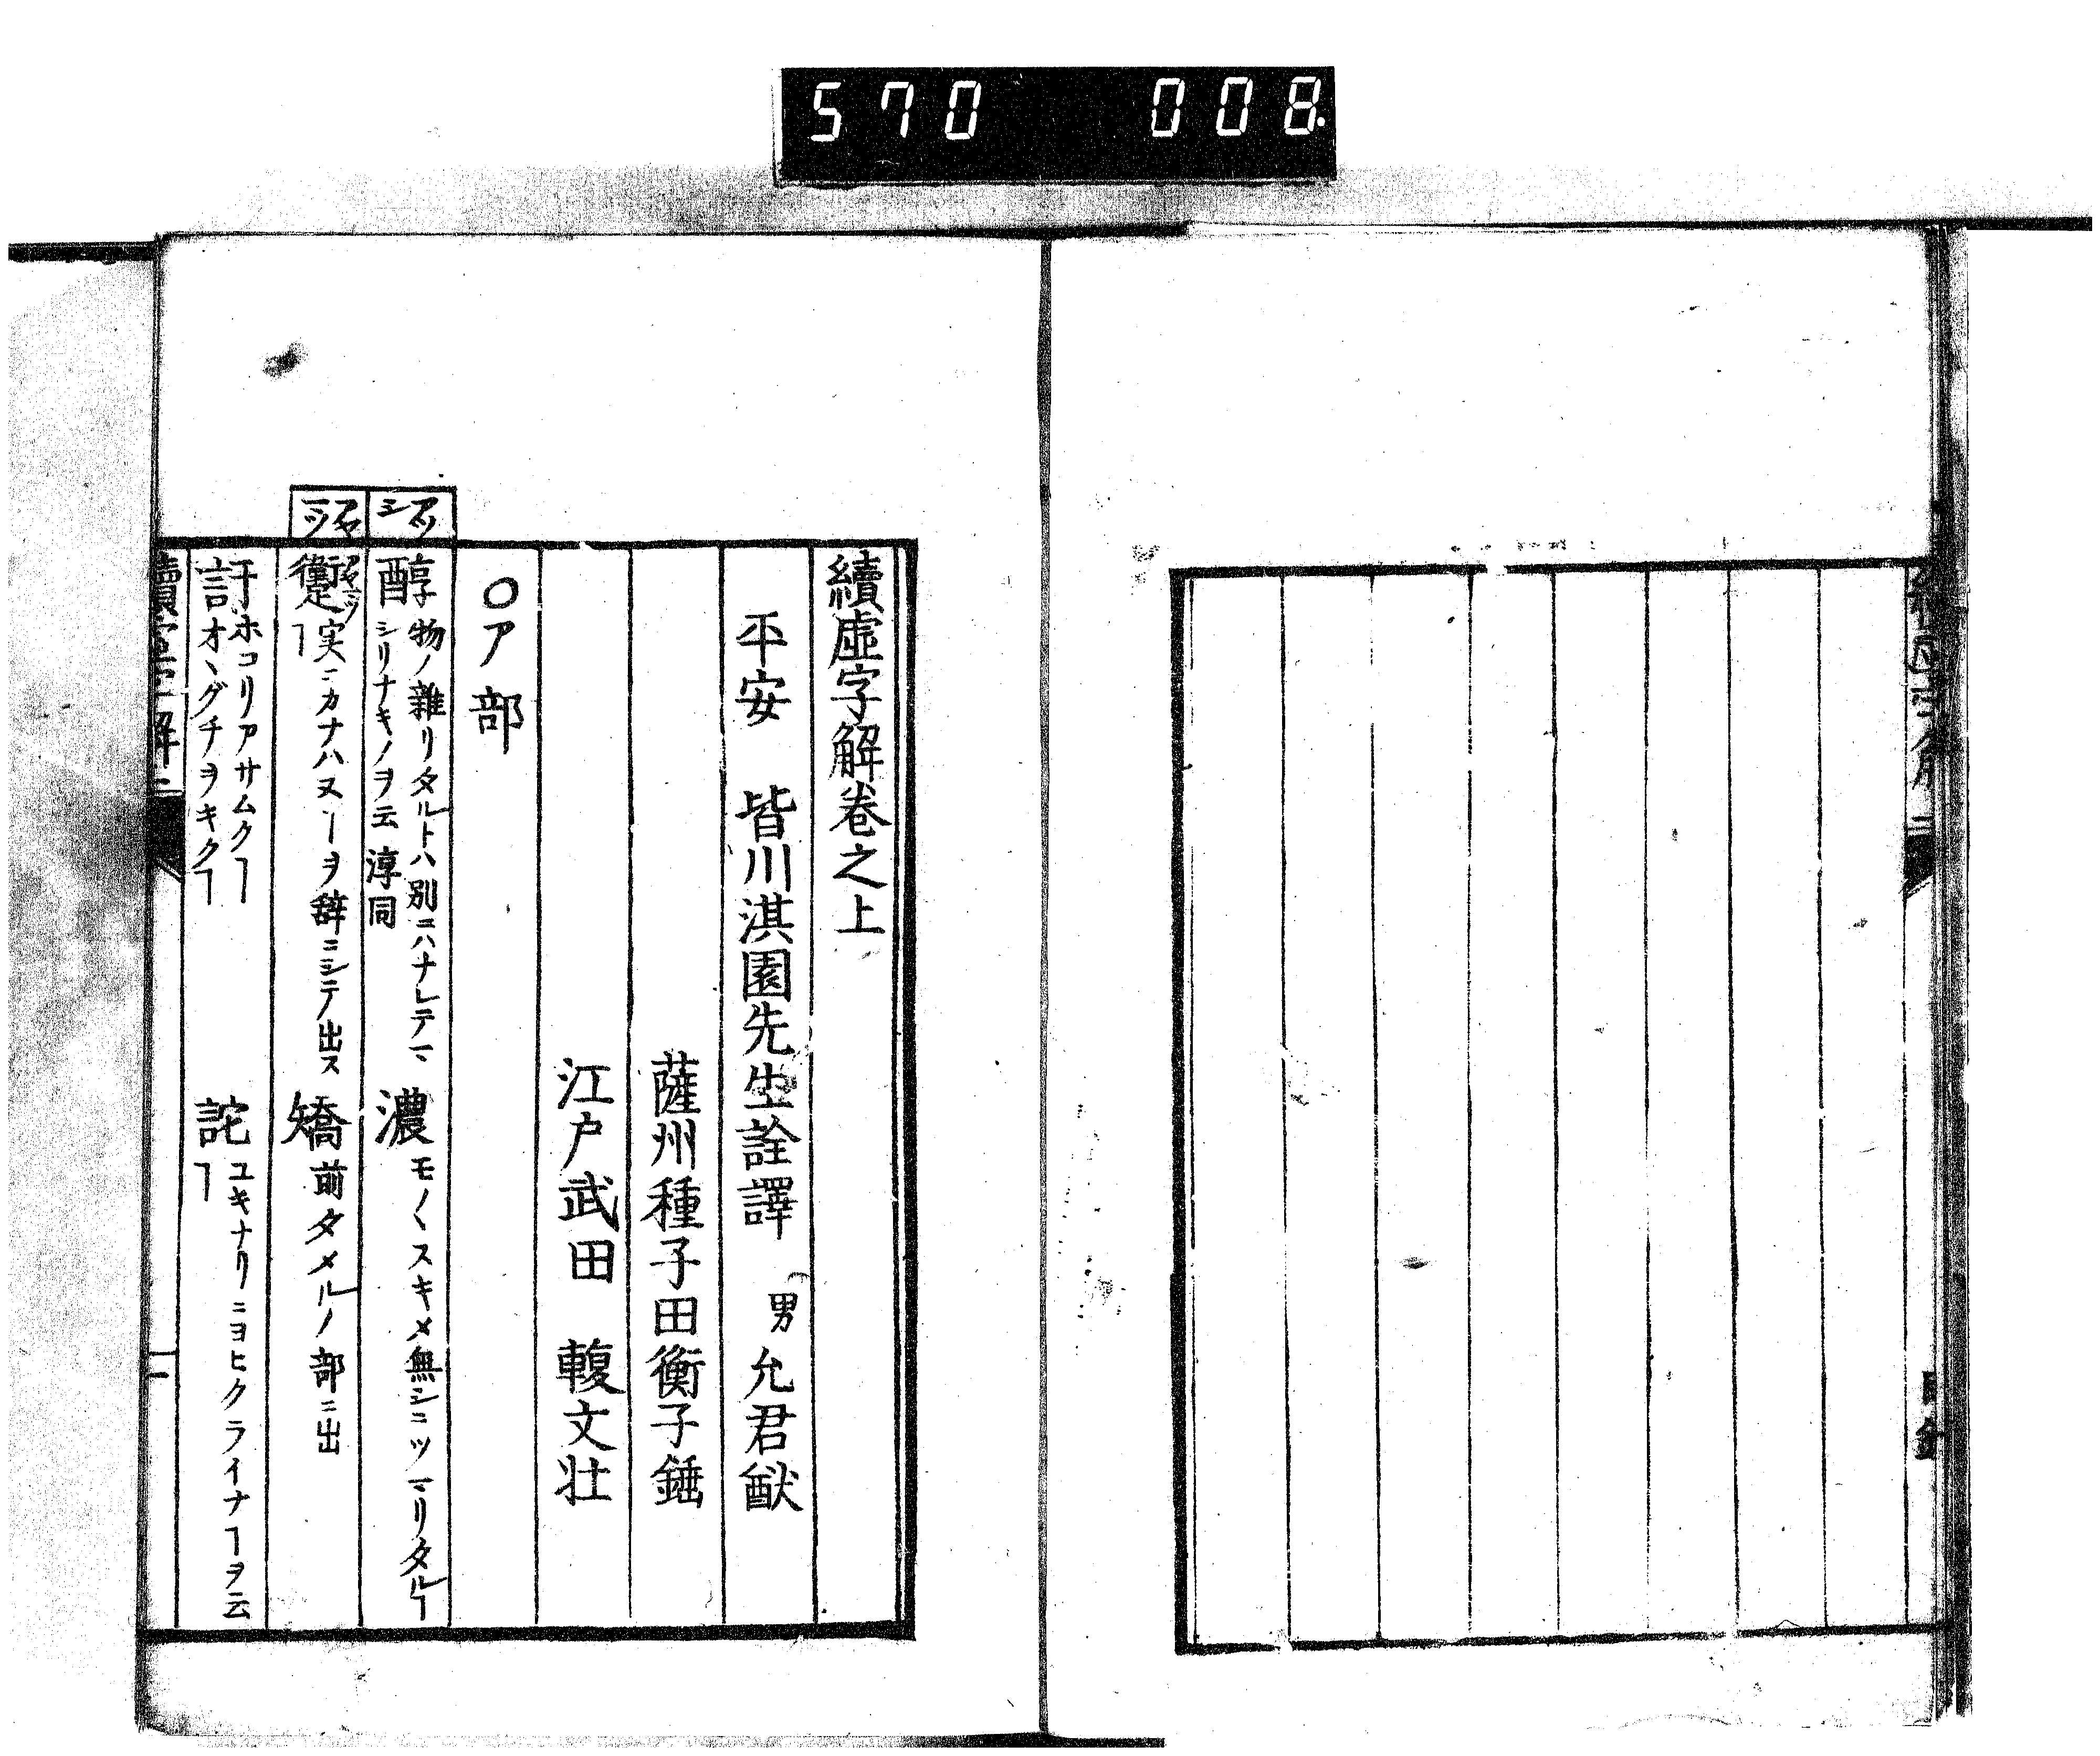 570 008.
續虛字解卷之上
平安 皆川淇園先生詮譯 男 允君猷
薩州種子田衡子錘
江戸武田 輹文壮
〇ア部
アツシ
醇 物ノ雜リタルトハ別ニハナレテマ
シリナキノヲ云 淳同
濃 モノヽスキメ無シニツマリタルヿ
アヤマツ
衞 実ニカナハヌヿヲ辞ニシテ出ス
ヿ
矯 前タメルノ部ニ出
訏 ホコリアサムクヿ
オヽグチヲキクヿ
詑 ユキナリニヨヒクライナヿヲ云
ヿ
二